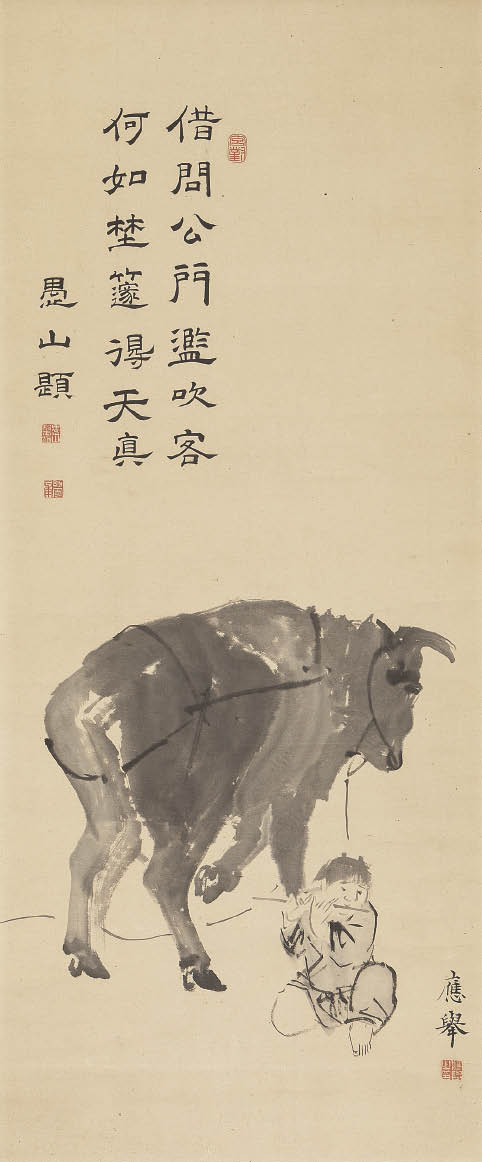 借問公門濫吹客
何如埜篴得天真
愚山題
應舉